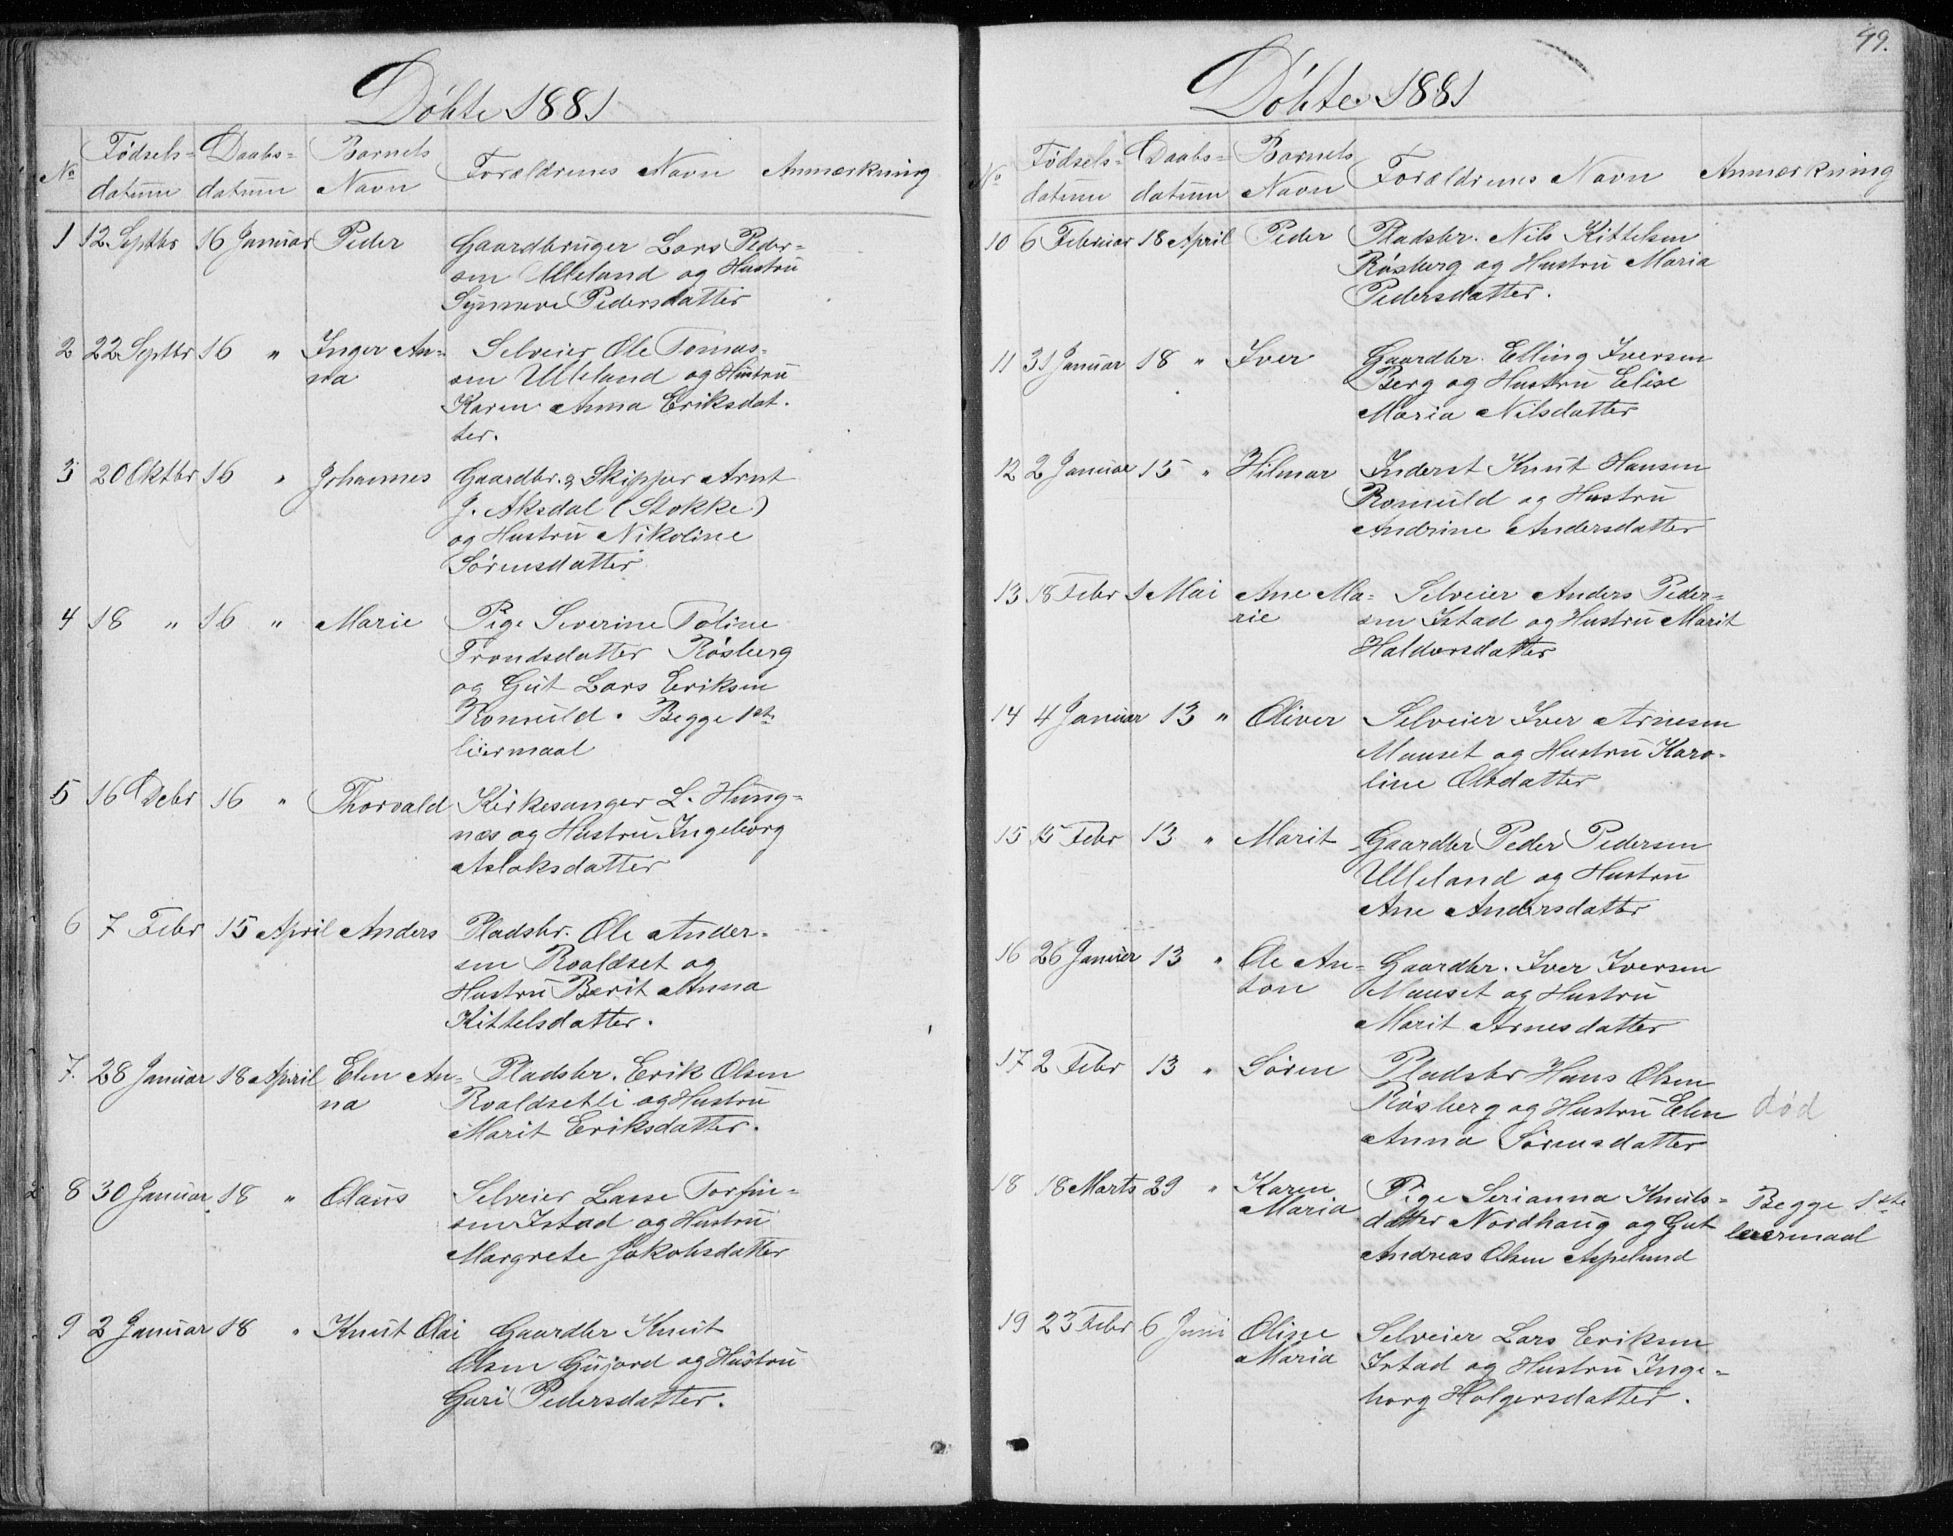 Döbte 1881
No Fødsels= Daabs= Barnets Forældrenes Navn Anmærkning
datum datum Navn
1 12 Septbr 16 Januar Peder Gaardbruger Lars Peder=
sen Ulleland og Hustru
Synneve Pedersdatter
2 22 Septbr 16 " Inger An= Selveier Ole Tomas=
na sen Ulleland og Hustru
Karen Anna Eriksdat-
ter.
3 20 Oktbr 16 " Johannes Gaardbr. & Skipper Arnt
J. Aksdal (Stokke)
og Hustru Nikoline
Sörensdatter
4 18 " 16 " Marie Pige Severine Toline
Trondsdatter Røsberg
og Gut Lars Eriksen
Romuld. Begge 1ste
leiermaal
5 16 Debr 16 " Thorvald Kirkesanger L. Hung=
næs og Hustru Ingeborg
Aslaksdatter
6 7 Febr 15 April Anders Pladsbr. Ole Ander-
sen Roaldset og
Hustru Berit Anna
Kittelsdatter.
7. 28 Januar 18 April Elen An= Pladsbr. Erik Olsen
na Roaldsetli og Hustru
Marit Eriksdatter.
8 30 Januar 18 " Olaus Selveier Lasse Torfin=
sen Istad og Hustru
Margrete Jakobsdatter
9 2 Januar 18 " Knut Olai Gaardbr Knut
Olsen Gujord og Hustru
Guri Pedersdatter.
99.
Döbte 1881
No Fødsels= Daabs= Barnets Forældrenes Navn Anmærkning
datum datum Navn
10 6 Februar 18 April Peder Pladsbr. Nils Kittelsen
Røsberg og Hustru Maria
Pedersdatter.
11 31 Januar 18 " Iver Gaardbr. Elling Iversen
Berg og Hustru Elise
Maria Nilsdatter
12 2 Januar 15 " Hilmar Inderst Knut Hansen
Romuld og Hustru
Andrine Andersdatter
13 18 Febr 1 Mai Ane Ma= Selveier Anders Peder=
rie sen Istad og Hustru Marit
Haldorsdatter
14 4 Januar 13 " Oliver Selveier Iver Arnesen
Mauset og Hustru Karo-
line Olsdatter
15 Febr 13 " Marit Gaardbr Peder Pedersen
Ulleland og Hustru
Ane Andersdatter
16 26 Januar 13 " Ole An= Gaardbr. Iver Iversen
ton Mauset og Hustru
Marit Arnesdatter
17 2 Febr 13 " Sören Pladsbr Hans Olsen
Røsberg og Hustru Elen død
Anna Sörensdatter
18 18 Marts 29 " Karen Pige Serianna Knuts= Begge 1ste
Maria datter Nordhaug og Gut leiermaal
Andreas Olsen Aspelund
19 23 Febr 6 Juni Oline Selveier Lars Eriksen
Maria Istad og Hustru Inge=
borg Holgersdatter.